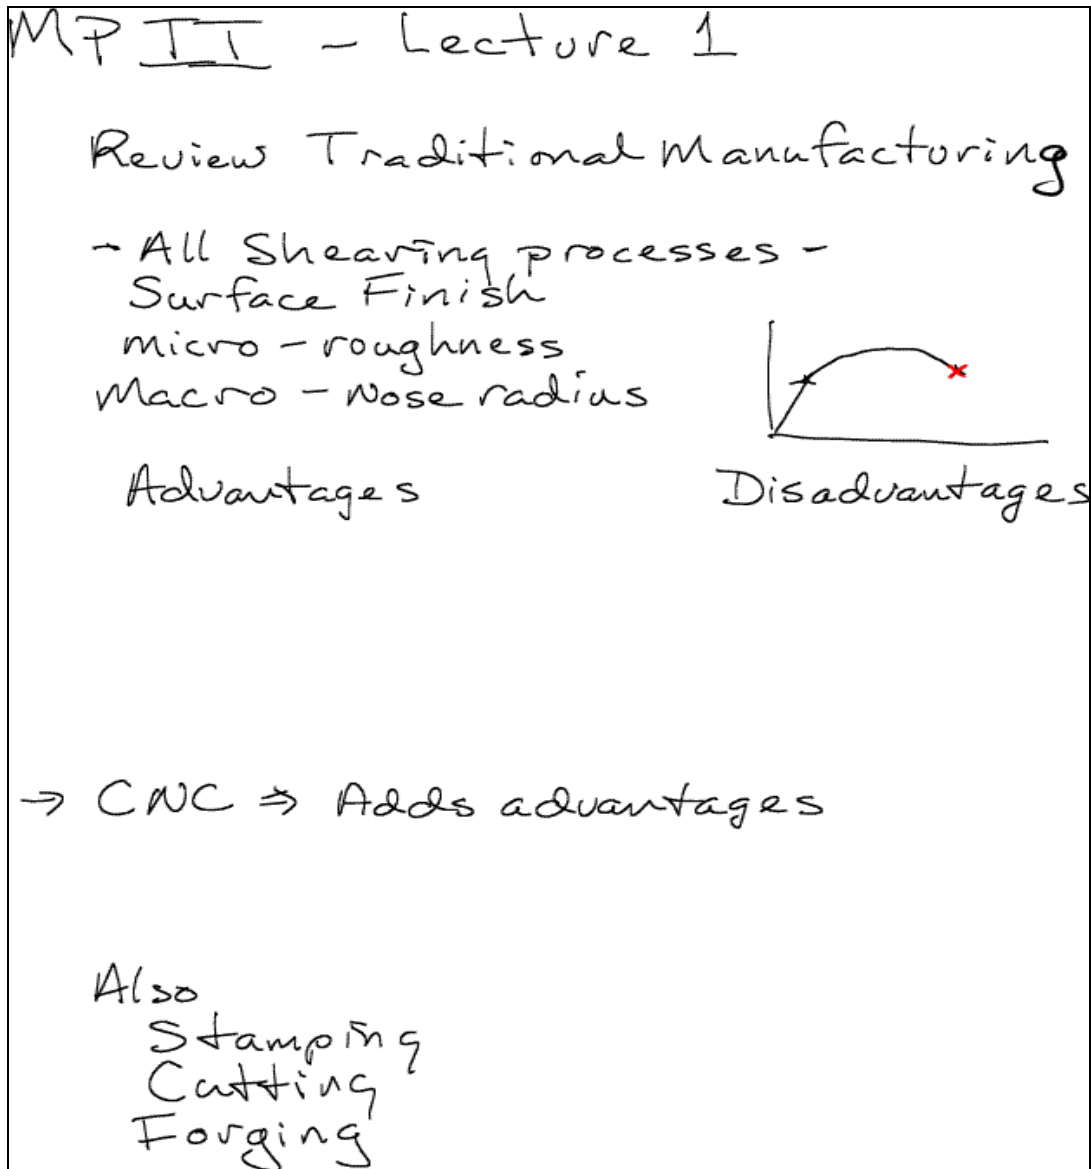 MP II - Lecture 1
Review Traditional Manufacturing
- All Shearing processes -
Surface Finish
micro - roughness
Macro - Nose radius
Advantages Disadvantages
→ CNC ⇒ Adds advantages
Also
Stamping
Cutting
Forging